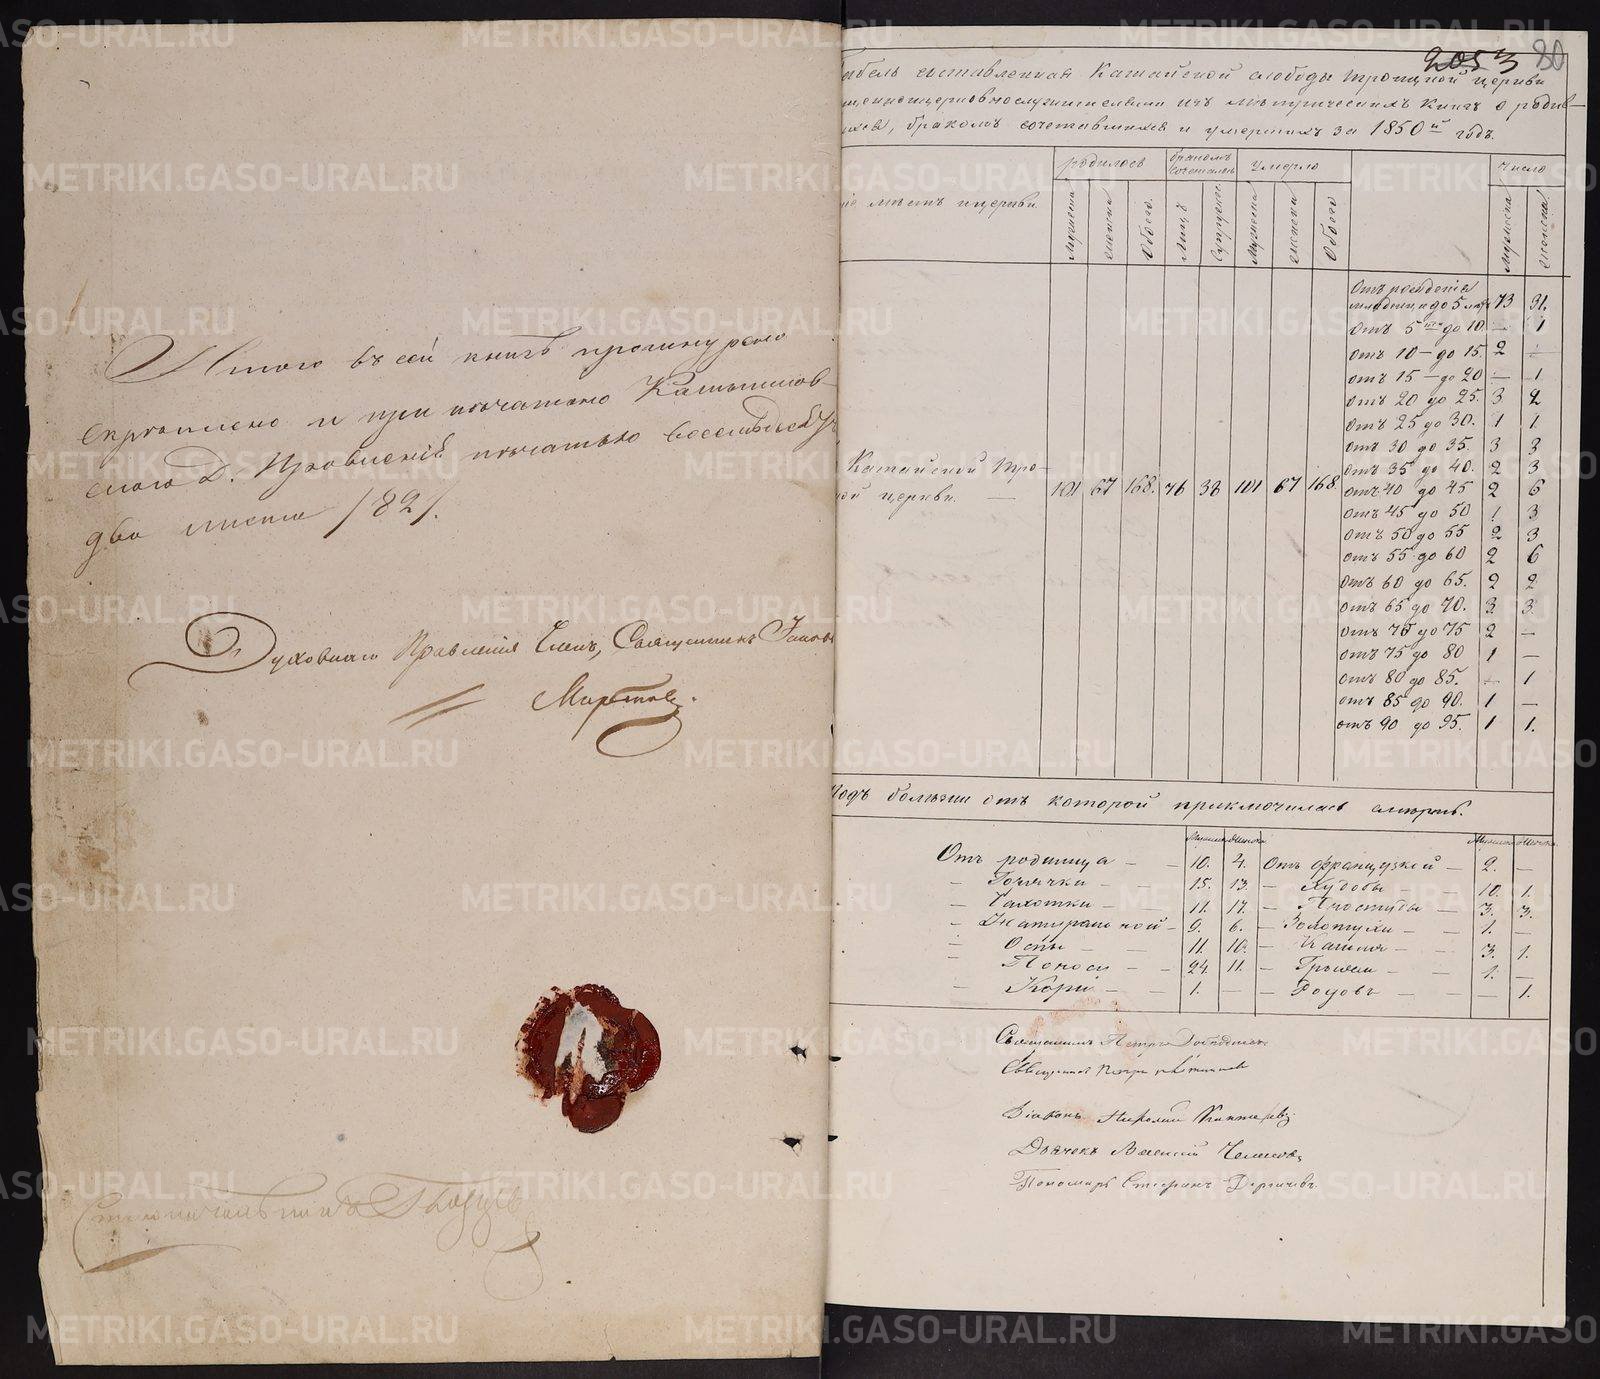 Итого въ сей книгѣ прошнуровано
скрѣплено и при печатано Камышлов-
скаго Д. Правленія печатью восемьдесятъ
два листа 1821.
Духовнаго Правленія Членъ, Священникъ
Столоначальникъ
2053 80
табель составленная Катайской слободы Троицкой церкви
щенноцерковнослужителями изъ метрическихъ книгъ о родив-
шихся, бракомъ сочетавшихся и умершихъ за 1850й годъ.
родилось бракомъ сочеталось Умерло Число
мѣстъ и церкви. Мужеска женска Обоего. Лицъ Супруж. Мужеска женска Обоего Мужеска женска
Отъ рожденія
младенцы до 5 лѣтъ 73 31.
отъ 5 до 10. — 1
отъ 10 — до 15. 2 —
отъ 15 — до 20 — 1
отъ 20 до 25. 3 2
отъ 25 до 30. 1 1
отъ 30 до 35. 3 3
отъ 35 до 40. 2 3
Катайской Тро-
ой церкви. — 101 67 168. 76 38 101 67 168. отъ 40 до 45 2 6
отъ 45 до 50 1 3
отъ 50 до 55 2 3
отъ 55 до 60 2 6
отъ 60 до 65. 2 2
отъ 65 до 70. 3 3
отъ 70 до 75 2 —
отъ 75 до 80 1 —
отъ 80 до 85. — 1
отъ 85 до 90. 1 —
отъ 90 до 95. 1 1.
Родъ болѣзни отъ которой приключилась смерть.
Мужеска Женска Мужеска Женска
Отъ родимца — — 10. 4. Отъ французской — 2. —
— Горячки — 15. 13. — Худобы — 10. 1.
— Чахотки — — 11. 17. — Простуды — 3. 3.
— Натуральной — 9. 6. — Золотухи — — 1. —
— Оспы — — 11. 10. — Кашля — — 3. 1.
— Поноса — — 24. 11. — Грыжи — — 1. —
— Кори — — 1. — — Родовъ — — — 1.
Священникъ Петръ
Священникъ Петръ
Діаконъ
Дьячекъ
Пономарь Стефанъ Дергачевъ
METRIKI.GASO-URAL.RU